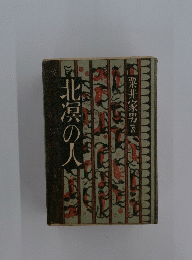 北溟の人
粟井家男著